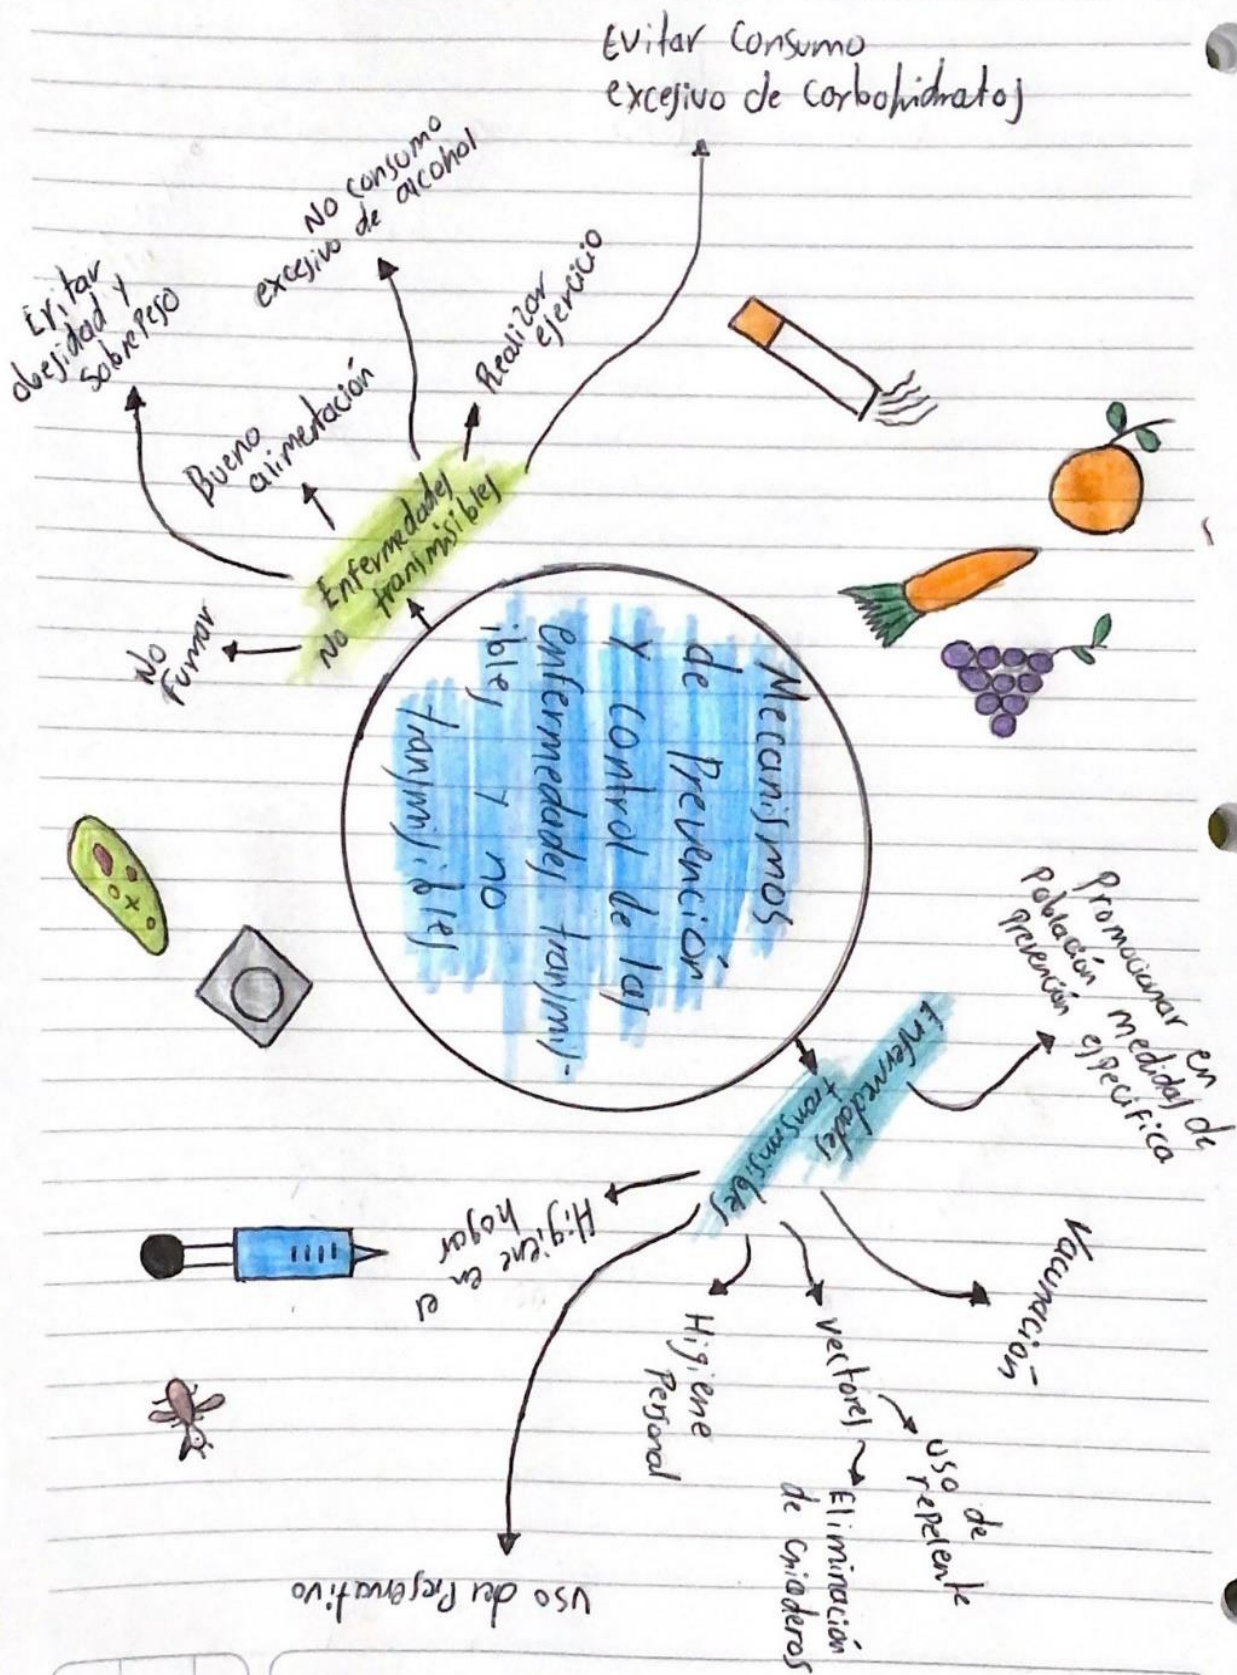 Mecanismos
de Prevención
y control de las
enfermedades transmis-
ibles y no
transmisibles
No Enfermedades
transmisibles
No
Fumar
Evitar
obesidad y
sobrepeso
Buena
alimentación
No consumo
excesivo de alcohol
Realizar
ejercicio
Evitar Consumo
excesivo de Carbohidratos
Enfermedades
transmisibles
Promocionar en
población medidas de
prevención especifica
Vacunación
vectores
uso de
repelente
Eliminación
de criaderos
Higiene
Personal
Higiene en el
hogar
Uso del Preservativo